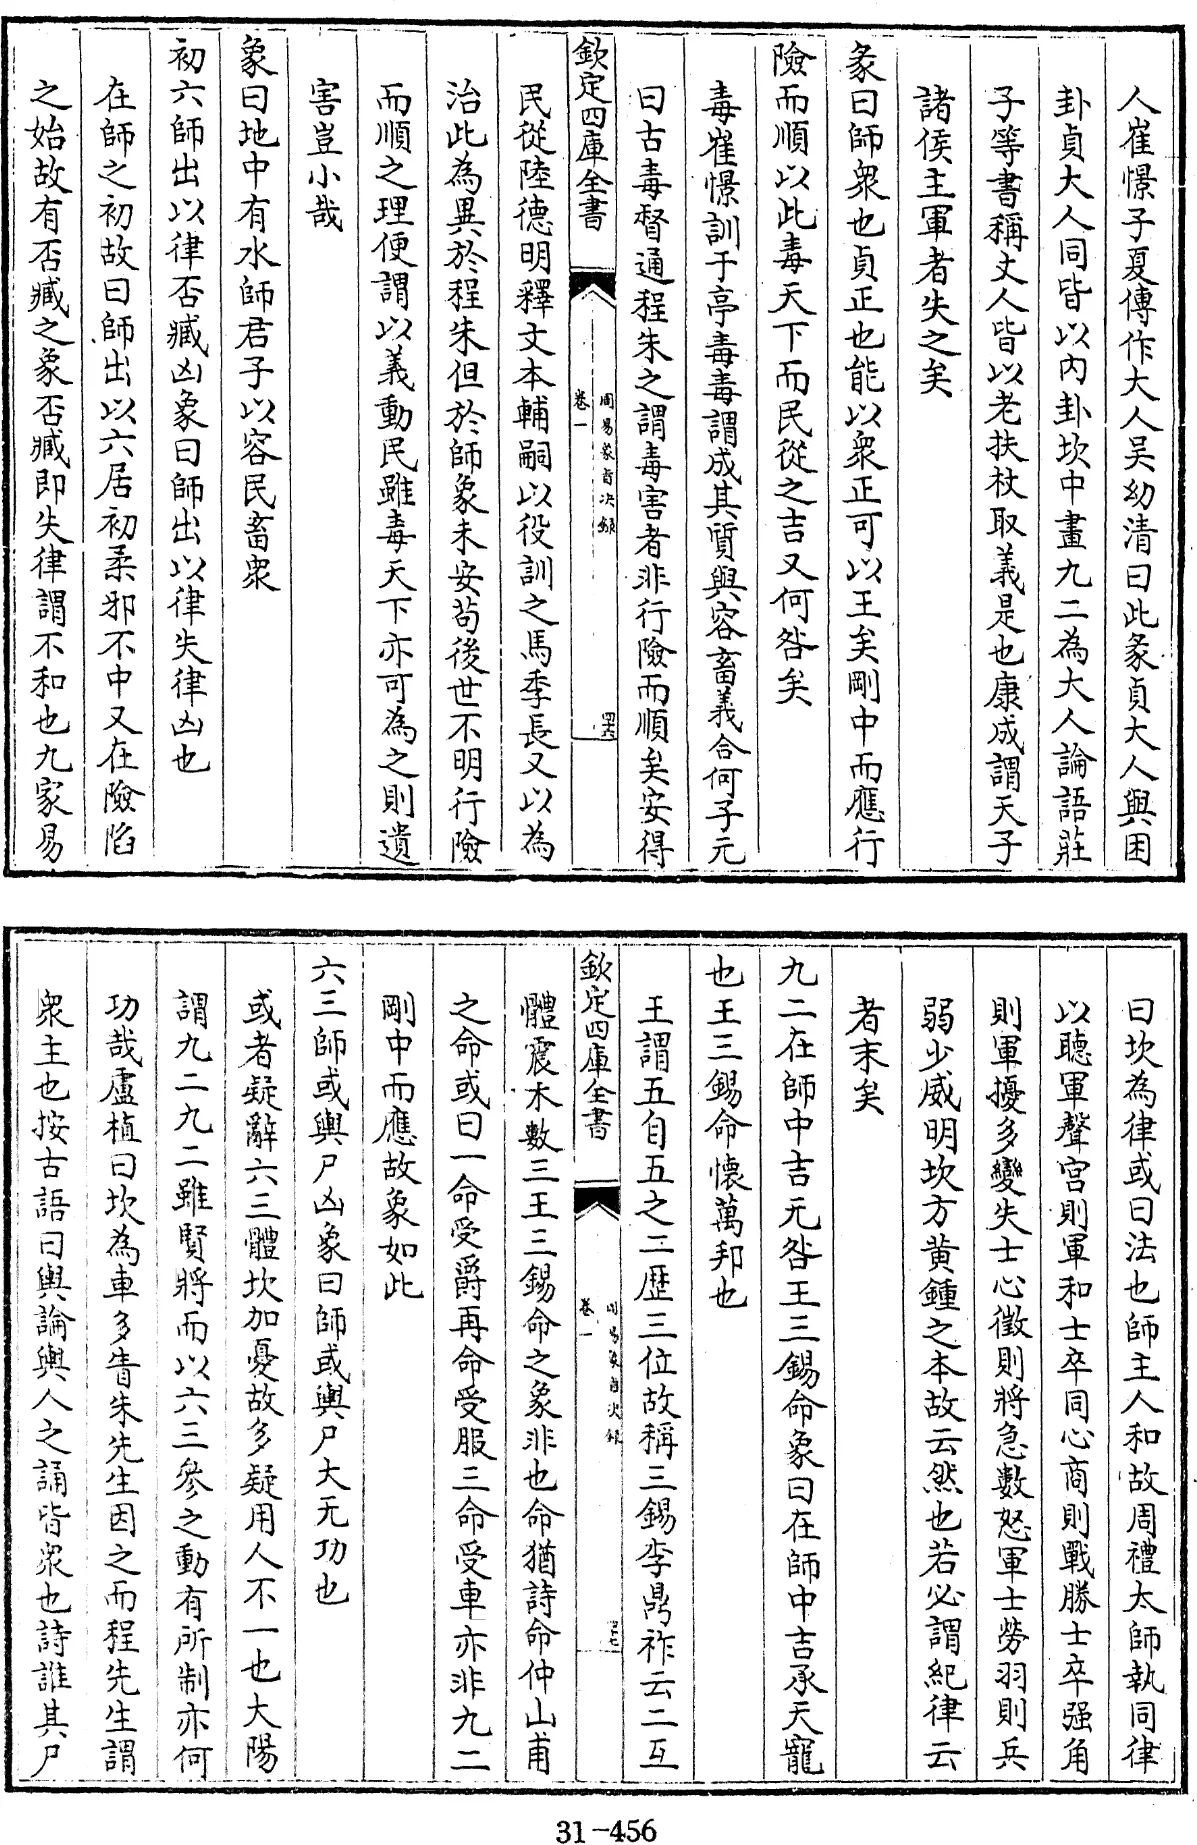 人崔憬子夏傳作大人吴幼清曰此彖貞大人與困
卦貞大人同皆以内卦坎中畫九二為大人論語莊
子等書稱丈人皆以老扶杖取義是也康成謂天子
諸侯主軍者失之矣
彖曰師衆也貞正也能以衆正可以王矣剛中而應行
險而順以此毒天下而民從之吉又何咎矣
毒崔憬訓于亭毒毒謂成其質與容畜義合何子元
曰古毒督通程朱之謂毒害者非行險而順矣安得
欽定四庫全書
周易象旨決録
卷一
四六
民從陸德明釋文本輔嗣以役訓之馬季長又以為
治此為異於程朱但於師象未安苟後世不明行險
而順之理便謂以義動民雖毒天下亦可為之則遺
害豈小哉
象曰地中有水師君子以容民畜衆
初六師出以律否臧凶象曰師出以律失律凶也
在師之初故曰師出以六居初柔邪不中又在險陷
之始故有否臧之象否臧即失律謂不和也九家易
曰坎為律或曰法也師主人和故周禮太師執同律
以聽軍聲宫則軍和士卒同心商則戰勝士卒强角
則軍擾多變失士心徵則將急數怒軍士勞羽則兵
弱少威明坎方黄鍾之本故云然也若必謂紀律云
者末矣
九二在師中吉无咎王三錫命象曰在師中吉承天寵
也王三錫命懷萬邦也
王謂五自五之二歴三位故稱三錫李鼎祚云二互
欽定四庫全書
周易象旨決録
卷一
四七
體震木數三王三錫命之象非也命猶詩命仲山甫
之命或曰一命受爵再命受服三命受車亦非九二
剛中而應故象如此
六三師或輿尸凶象曰師或輿尸大无功也
或者疑辭六三體坎加憂故多疑用人不一也大陽
謂九二九二雖賢將而以六三參之動有所制亦何
功哉盧植曰坎為車多眚朱先生因之而程先生謂
衆主也按古語曰輿論輿人之誦皆衆也詩誰其尸
31-456